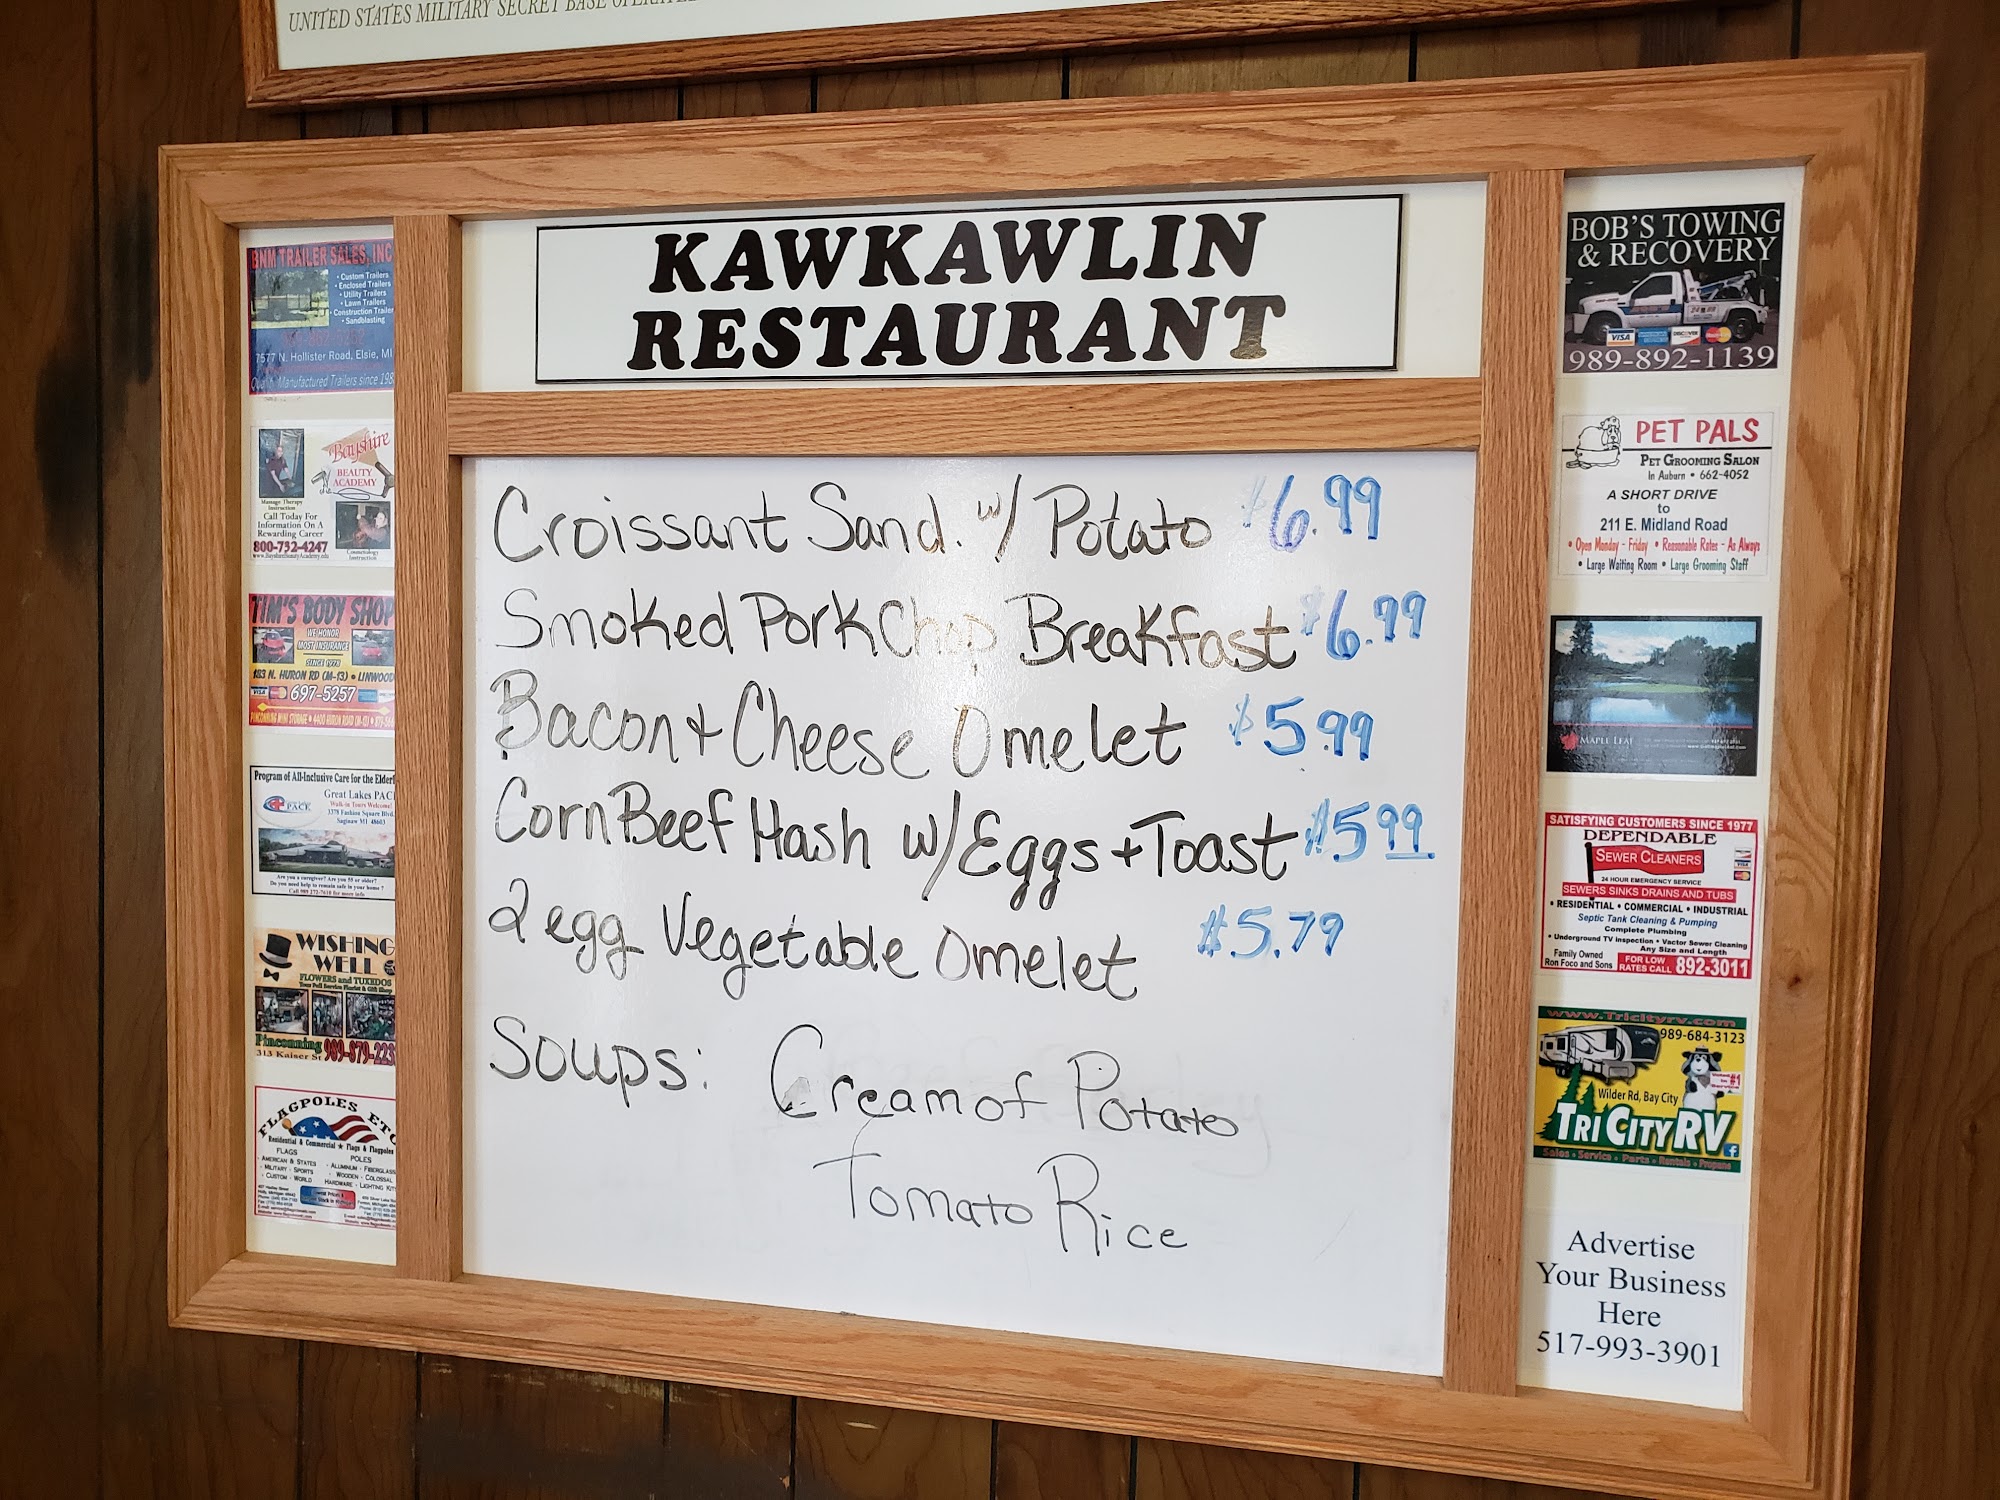 UNITED STATES MILITARY SECRET BASE
KAWKAWLIN
RESTAURANT
Croissant Sand. w/ Potato $6.99
Smoked Pork Chop Breakfast $6.99
Bacon + Cheese Omelet $5.99
Corn Beef Hash w/ Eggs + Toast $5.99
2 egg Vegetable Omelet $5.79
Soups: Cream of Potato
Tomato Rice
BNM TRAILER SALES, INC
• Custom Trailers
• Enclosed Trailers
• Utility Trailers
• Lawn Trailers
• Construction Trailer
• Sandblasting
7577 N. Hollister Road, Elsie, MI
Manufactured Trailers since
Bayshire
BEAUTY
ACADEMY
Massage Therapy
Instruction
Call Today For
Information On A
Rewarding Career
800-732-4247
Cosmetology
Instruction
TIM'S BODY SHOP
WE HONOR
MOST INSURANCE
SINCE 1978
183 N. HURON RD (M-13) • LINWOOD
VISA 697-5257
PINCONNING MINI STORAGE • 4400 HURON ROAD (M-13) •
Program of All-Inclusive Care for the
Great Lakes
PACE
Walk-in Tours Welcome!
3378 Fashion Square Blvd.
Saginaw MI 48603
Are you a caregiver? Are you 55 or older?
Do you need help to remain safe in your home?
Call 989 272-7610 for more info
WISHING
WELL
FLOWERS and TUXEDOS
Your Full Service Florist & Gift Shop
Pinconning 989-879-223
313 Kaiser St
FLAGPOLES ETC
Residential & Commercial ★ Flags & Flagpoles
FLAGS
• AMERICAN & STATES
• MILITARY • SPORTS
• CUSTOM • WORLD
POLES
• ALUMINUM • FIBERGLASS
• WOODEN • COLOSSAL
HARDWARE • LIGHTING
BOB'S TOWING
& RECOVERY
VISA DISCOVER MasterCard
989-892-1139
PET PALS
PET GROOMING SALON
In Auburn • 662-4052
A SHORT DRIVE
to
211 E. Midland Road
• Open Monday - Friday • Reasonable Rates - As Always
• Large Waiting Room • Large Grooming Staff
MAPLE LEAF
SATISFYING CUSTOMERS SINCE 1977
DEPENDABLE
SEWER CLEANERS
24 HOUR EMERGENCY SERVICE
SEWERS SINKS DRAINS AND TUBS
• RESIDENTIAL • COMMERCIAL • INDUSTRIAL
Septic Tank Cleaning & Pumping
Complete Plumbing
• Underground TV Inspection • Vactor Sewer Cleaning
Any Size and Length
Family Owned
Ron Foco and Sons
FOR LOW
RATES CALL 892-3011
www.Tricityrv.com
989-684-3123
Wilder Rd, Bay City
TRI CITY RV
Sales • Service • Parts • Rentals • Propane
Advertise
Your Business
Here
517-993-3901